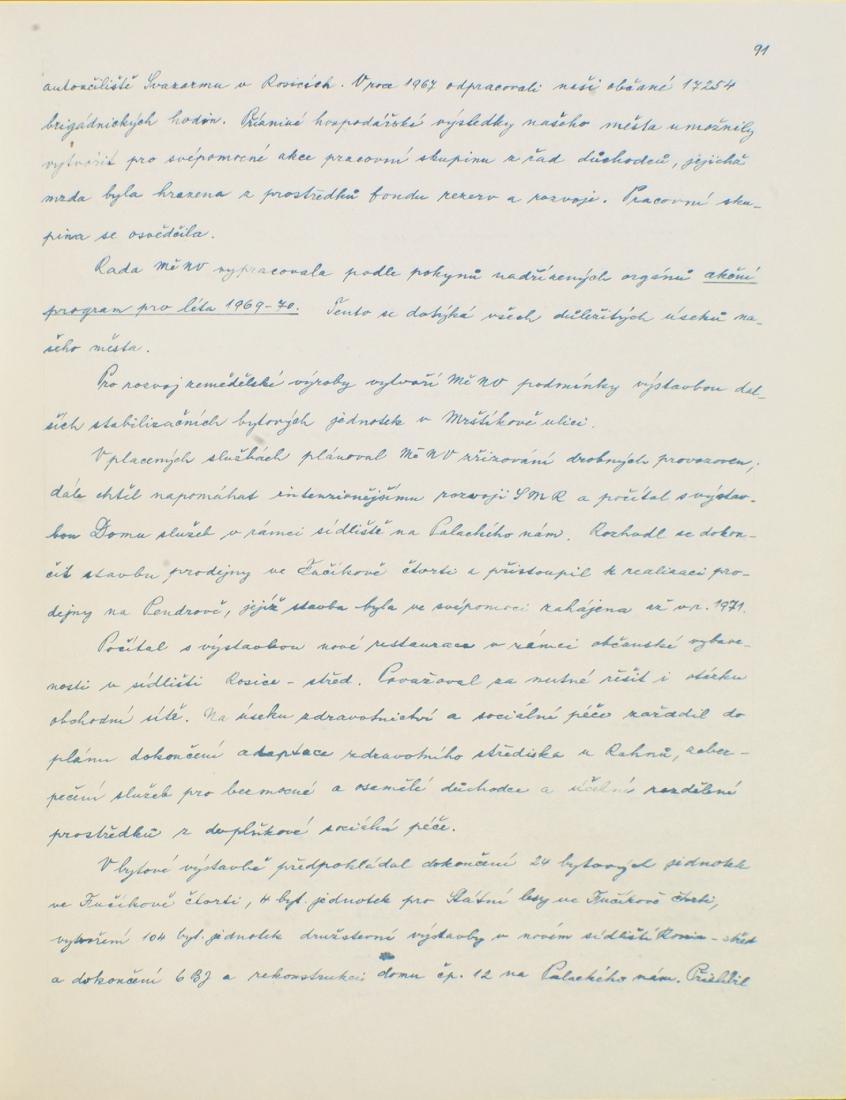 91
autoučiliště Svazarmu v Rosicích. V roce 1967 odpracovali naši občané 17254
brigádnických hodin. Příznivé hospodářské výsledky našeho města umožnily
vytvořit pro svépomocné akce pracovní skupinu z řad důchodců, jejichž
mzda byla hrazena z prostředků fondu rezerv a rozvoje. Pracovní sku-
pina se osvědčila.
Rada MěNV vypracovala podle pokynů nadřízených orgánů akční
program pro léta 1969-70. Tento se dotýká všech důležitých úseků na-
šeho města.
Pro rozvoj zemědělské výroby vytvoří MěNV podmínky výstavbou dal-
ších stabilizačních bytových jednotek v Mrštíkově ulici.
V placených službách plánoval MěNV zřizování drobných provozoven;
dále chtěl napomáhat intenzivnějšímu rozvoji SMR a počítal s výstav-
bou Domu služeb v rámci sídliště na Palackého nám. Rozhodl se dokon-
čit stavbu prodejny ve Fučíkově čtvrti a přistoupil k realizaci pro-
dejny na Pendrově, jejíž stavba byla ve svépomoci zahájena až v r. 1971.
Počítal s výstavbou nové restaurace v rámci občanské vybave-
nosti v sídlišti Rosice - střed. Považoval za nutné řešit i otázku
obchodní sítě. Na úseku zdravotnictví a sociální péče zařadil do
plánu dokončení adaptace zdravotního střediska u Rahnů, zabez-
pečení služeb pro bezmocné a osamělé důchodce a účelné rozdělení
prostředků z doplňkové sociální péče.
V bytové výstavbě předpokládal dokončení 24 bytových jednotek
ve Fučíkově čtvrti, 4 byt. jednotek pro Státní lesy ve Fučíkově čtvrti,
vytvoření 104 byt. jednotek družstevní výstavby v novém sídlišti Rosice - střed
a dokončení 6 BJ a rekonstrukci domu čp. 12 na Palackého nám. Přislíbil